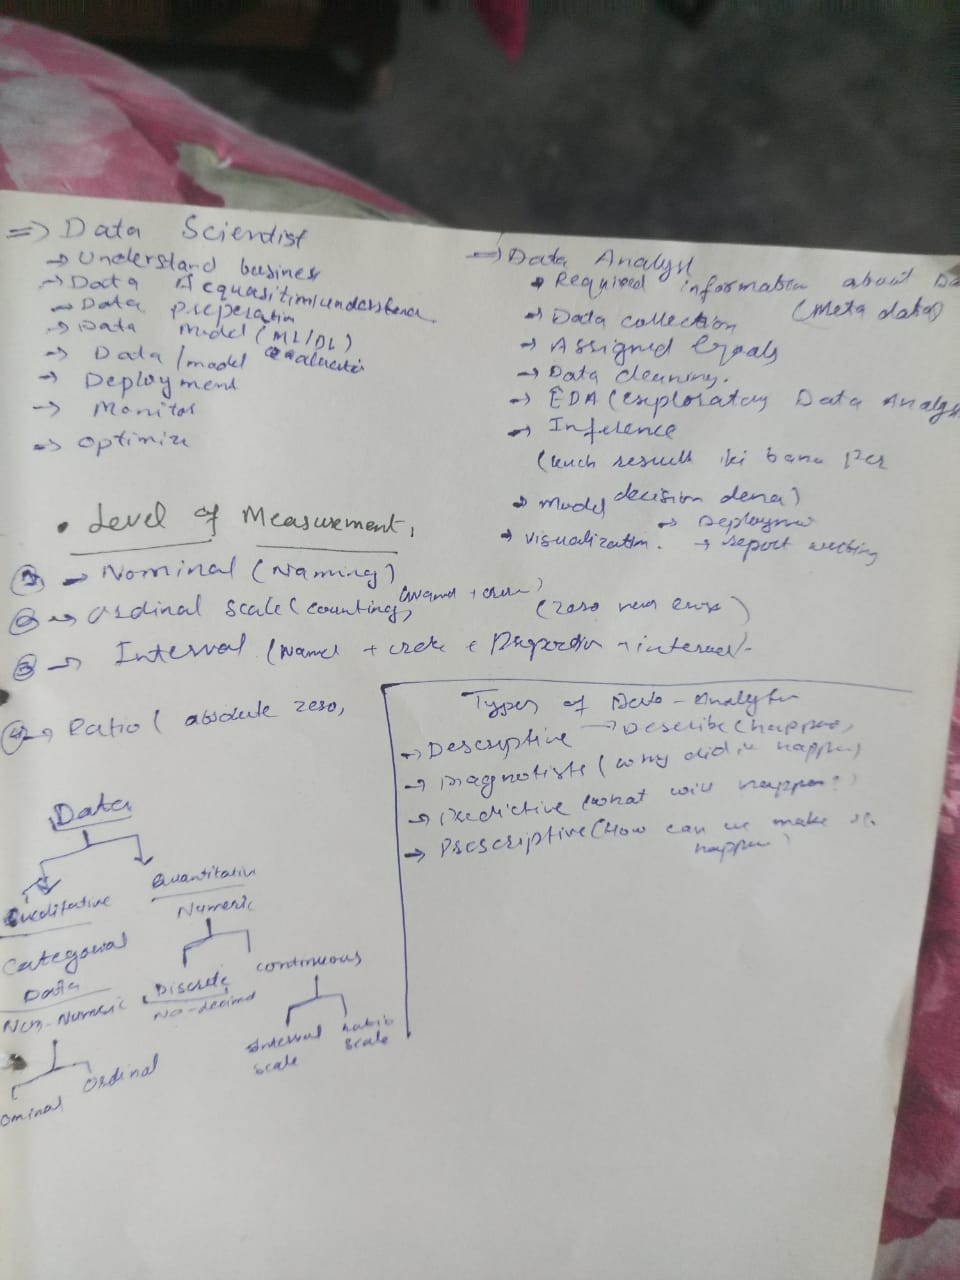 => Data Scientist
→ Understand business
→ Data Acquasition/understand
→ Data preperation
→ Data Model (ML/DL)
→ Data/model evaluation
→ Deployment
→ Monitor
→ Optimize
→ Data Analyst
→ Required information about Da
(Meta data)
→ Data collection
→ Assigned
→ Data cleaning.
→ EDA (exploratory Data Analys
→ Inference
(kuch result ki bana per
decision dena)
→ Model → Deployment
→ visualization. → report writing
• Level of Measurement,
① → Nominal (Naming)
② → Ordinal scale (counting,
③ → Interval (Name + + interval
④ → Ratio ( absolute zero,
Types of Data-Analytics
→ Descriptive → Describe (happen,
→ (why did it happen)
→ Predictive (what will happen?)
→ Prescriptive (How can we make it
happen)
Data
Qualitative
Categorial
Data
Non-Numeric
ominal
Ordinal
Quantitative
Numeric
Discrete
No-decimal
continuous
Interval
scale
scale